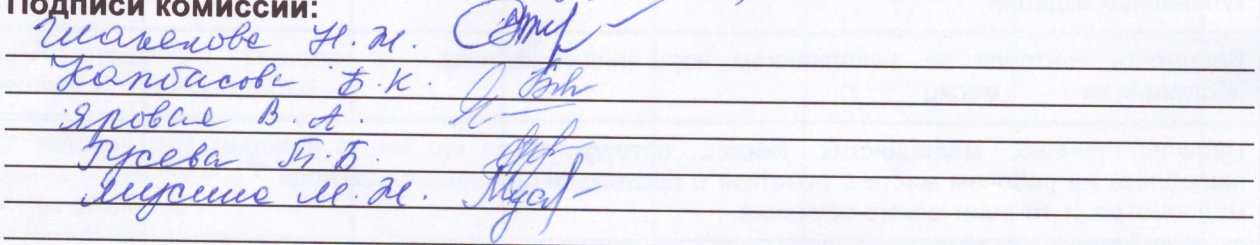 Подписи комиссии:
Шакенова Н. Ж.
Капбасова Б. К.
Яровая В А.
Гусева Т. Б.
Мусина М. Ж.